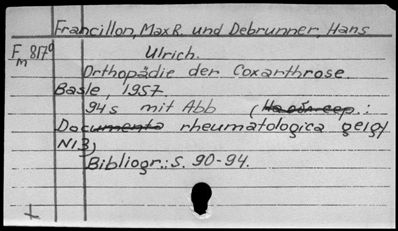 Francillon, Max R. und Debrunner, Hans
F 817⁰ Ulrich.
m
Orthopädie der Coxarthrose.
Basle, 1957.
94 s mit Abb (На обл сер.:
Documenta rheumatologica geigy
N13)
Bibliogr.: S. 90-94.